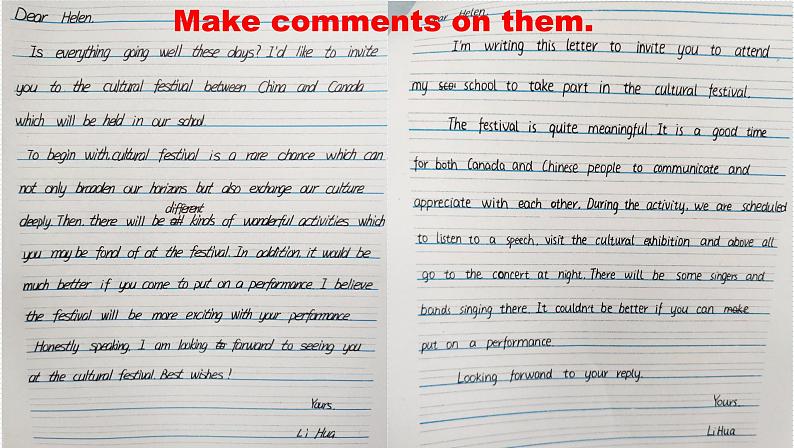 Make comments on them.
Dear Helen.
Is everything going well these days? I'd like to invite
you to the cultural festival between China and Canada
which will be held in our school.
To begin with, cultural festival is a rare chance which can
not only broaden our horizons but also exchange our culture
different
deeply. Then, there will be all kinds of wonderful activities which
you may be fond of at the festival. In addition, it would be
much better if you come to put on a performance. I believe
the festival will be more exciting with your performance.
Honestly speaking, I am looking to forward to seeing you
at the cultural festival. Best wishes!
Yours,
Li Hua
Dear Helen,
I'm writing this letter to invite you to attend
my scol school to take part in the cultural festival.
The festival is quite meaningful. It is a good time
for both Canada and Chinese people to communicate and
appreciate with each other. During the activity, we are scheduled
to listen to a speech, visit the cultural exhibition and above all
go to the concert at night. There will be some singers and
bands singing there. It couldn't be better if you can make
put on a performance.
Looking forward to your reply.
Yours,
Li Hua